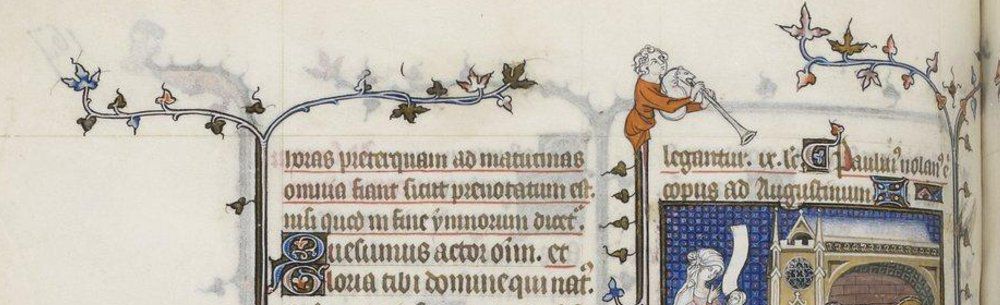 horas preterquam ad matutinas
omnia fiant sicut prenotatum est.
nisi quod in fine ymnorum dicet᷑.
Quesumus actor oi̅m. et
Gloria tibi domine qui nat᷑.
legantur. ix. lc̅
Paulin᷒ nolan᷒ e
copus ad Augustinum